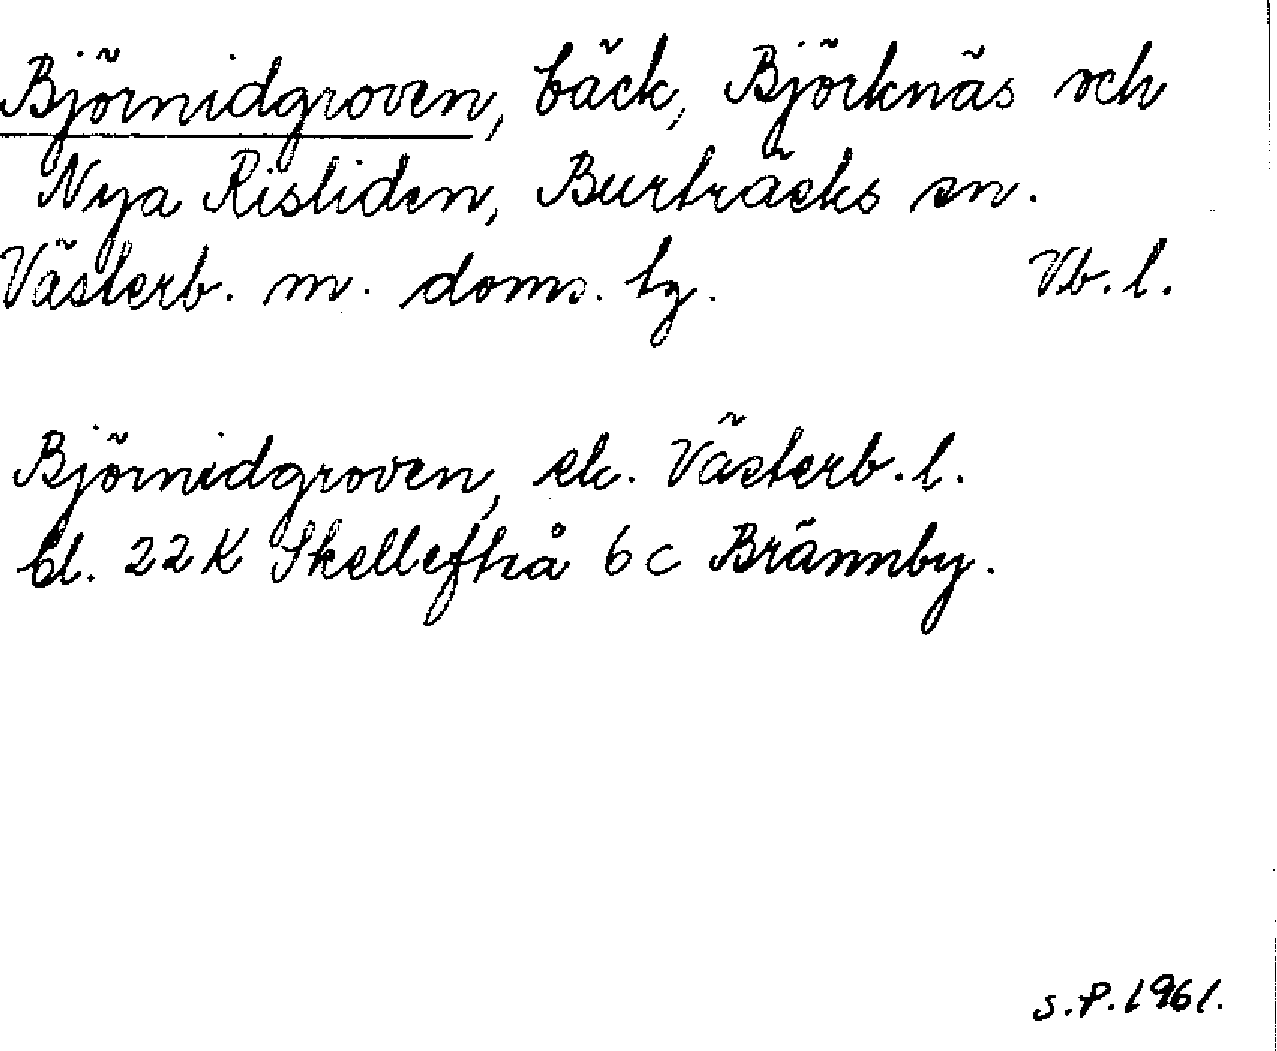 Björnidgroven, bäck, Björknäs och
Nya Risliden, Burträsks sn.
Västerb. m. doms. tg. Vb. l.
Björnidgroven, ek. Västerb. l.
bl. 22 K Skellefteå 6 c Brännby.
S. P. 1961.